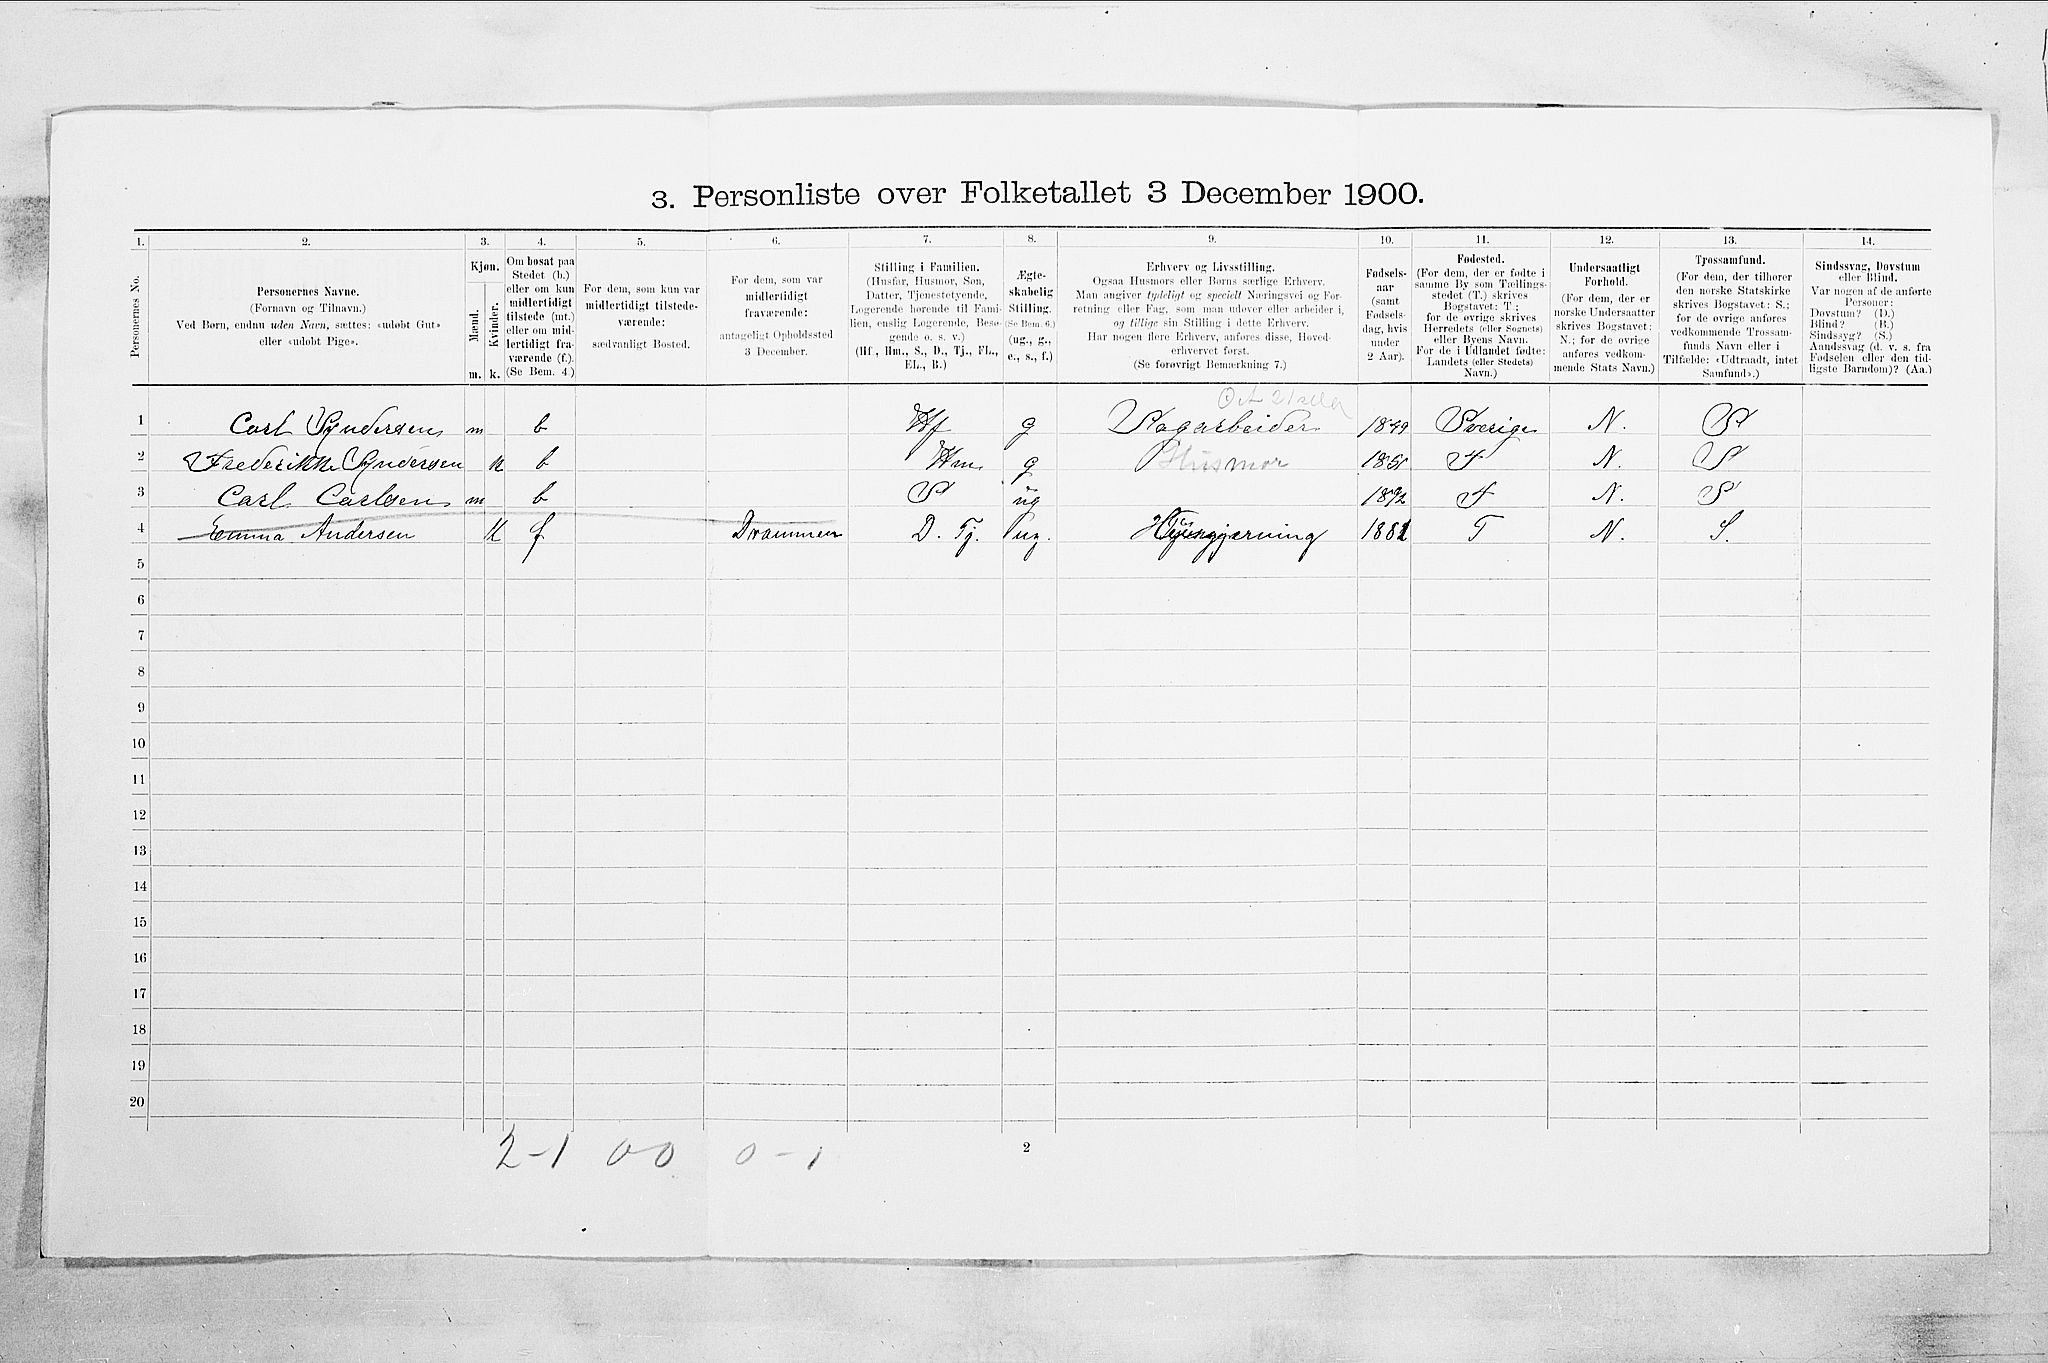 3. Personliste over Folketallet 3 December 1900.
1. 2. 3. 4. 5. 6. 7. 8. 9. 10. 11. 12. 13. 14.
Personernes No.
Personernes Navne.
(Fornavn og Tilnavn.)
Ved Børn, endnu uden Navn, sættes: «udøbt Gut»
eller «udøbt Pige».
Kjøn.
Mænd.
Kvinder.
m. k.
Om bosat paa
Stedet (b.)
eller om kun
midlertidigt
tilstede (mt.)
eller om mid-
lertidigt fra-
værende (f.)
(Se Bem. 4.)
For dem, som kun var
midlertidigt tilstede-
værende:
sædvanligt Bosted.
For dem, som var
midlertidigt
fraværende:
antageligt Opholdssted
3 December.
Stilling i Familien.
(Husfar, Husmor, Søn,
Datter, Tjenestetyende,
Logerende hørende til Fami-
lien, enslig Logerende, Besø-
gende o. s. v.)
(Hf., Hm., S., D., Tj., FL.,
EL., B.)
Ægte-
skabelig
Stilling.
(Se Bem. 6.)
(ug., g.,
e., s., f.)
Erhverv og Livsstilling.
Ogsaa Husmors eller Børns særlige Erhverv.
Man angiver tydeligt og specielt Næringsvei og For-
retning eller Fag, som man udøver eller arbeider i,
og tillige sin Stilling i dette Erhverv.
Har nogen flere Erhverv, anføres disse, Hoved-
erhvervet først.
(Se forøvrigt Bemærkning 7.)
Fødsels-
aar
(samt
Fødsels-
dag, hvis
under
2 Aar).
Fødested.
(For dem, der er fødte i
samme By som Tællings-
stedet (T.) skrives
Bogstavet: T;
for de øvrige skrives
Herredets (eller Sognets)
eller Byens Navn.
For de i Udlandet fødte:
Landets (eller Stedets)
Navn.)
Undersaatligt
Forhold.
(For dem, der er
norske Undersaatter
skrives Bogstavet:
N.; for de øvrige
anføres vedkom-
mende Stats Navn.)
Trossamfund.
(For dem, der tilhører
den norske Statskirke
skrives Bogstavet: S.;
for de øvrige anføres
vedkommende Trossam-
funds Navn eller i
Tilfælde: «Udtraadt, intet
Samfund».)
Sindssvag, Døvstum
eller Blind.
Var nogen af de anførte
Personer:
Døvstum? (D.)
Blind? (B.)
Sindssyg? (S.)
Aandssvag (d. v. s. fra
Fødselen eller den tid-
ligste Barndom)? (Aa.)
1 Carl Syndersen m b Hf g Sagarbeider 1849 Sverige N. S
2 Frederikke Syndersen k b Hm g Husmor 1851 T N. S
3 Carl Carlsen m b S ug 1892 T N. S
4 Emma Andersen k f Drammen D. Tj. ug. 1881 T N. S.
5
6
7
8
9
10
11
12
13
14
15
16
17
18
19
20
2-1 0-0 0-1
2